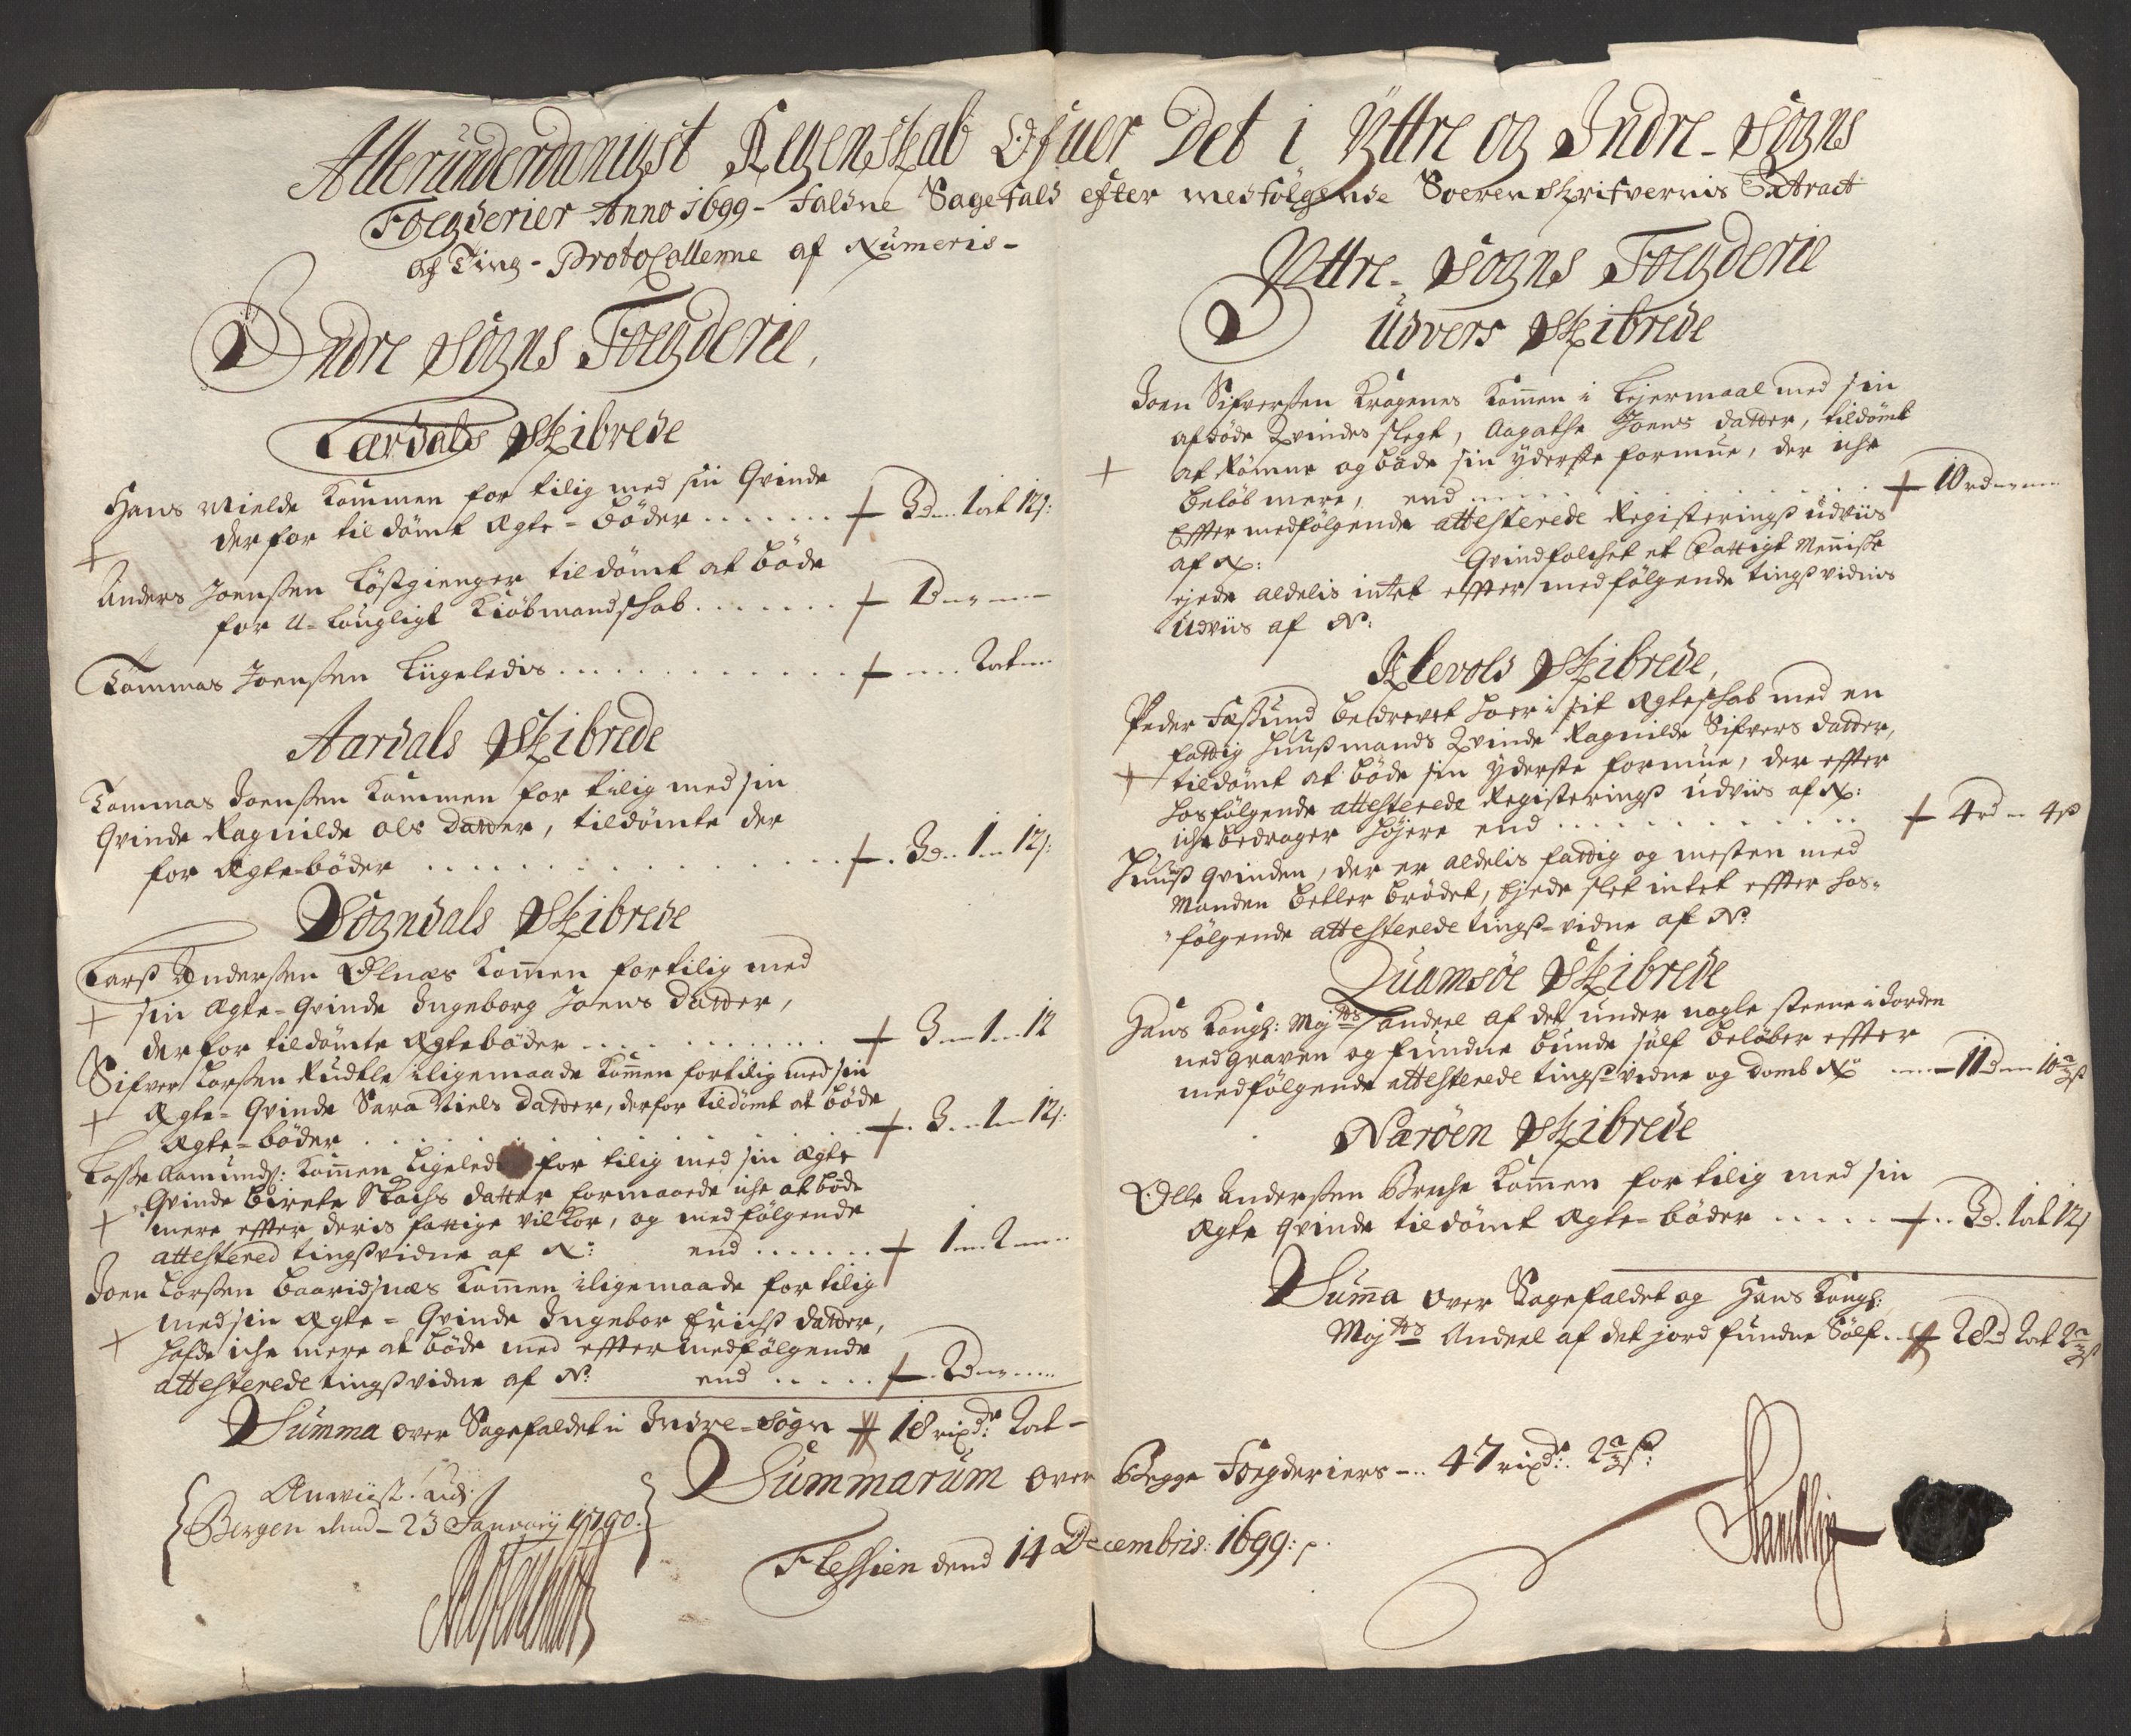 Allerunderdanigst Regenskab Ofuer Det i Yttre og Indre-Sogns
Foegderier Anno 1699- faldne Sagefald efter medfølgende Sorenskrifvernis Extract
af Ting-Protocollerne af Numeris-
Indre Sogns Foegderie,
Lærdals Skibrede
Hans Mielde kommen for tilig med sin Qvinde
derfor tildømt Ægte-bøder ....... 3d. 1ort 12s:
Anders Joenssen Løsgienger tildømt at bøde
for U-lougligt Kiøbmandskab ....... 1d
Tommas Joenssen Liigeledis ....... 2ort
Aardals Skibrede
Tommas Joenssen kommen for tilig med sin
Qvinde Ragnilde Ols datter, tildømte der
for Ægtebøder ....... 3d. 1. 12s:
Sogndals Skibrede
Larss Anderssen Ølnæs kommen fortilig med
sin Ægte-Qvinde Ingeborg Joens datter,
derfor tildømte Ægtebøder ....... 3 1 12
Sifver Larssen iligemaade kommen fortilig med sin
Ægte-Qvinde Sara Niels datter, derfor tildømt at bøde
Ægte-bøder ....... 3. 1 12s:
Lasse Aamunds: kommen ligeledis for tilig med sin Ægte
Qvinde Birete datter formaaede iche at bøde
mere effter deris fattige vilkor, og medfølgende
attestered tingsvidne af No: end ....... 1 2
Joen Larssen Baaridsnæs kommen iligemaade for tilig
med sin Ægte-Qvinde Ingebor Erichs datter,
hafde iche mere at bøde med effter medfølgende
attesterede tingsvidne af No: end ..... 2d
Summa over Sagefaldet i Indre-Sogn 18 rixdr: 2ort-
Bergen dend-23 January 1700.
Yttre-Sogns Foegderie
Udvers Skibrede
Joen Sifverssen Kragenes kommen i Lejermaal med sin
afdøde Qvindes slegt, Aagathe Joens datter, tildømt
at Rømme og bøde sin yderste formue, der iche
beløb mere, end ....... 10rd
Effter medfølgende attesterede Registerings udviis
af No: Qvindfolchet et Fattigt Menniske
ejede aldelis intet effter medfølgende tings vidnis
Udviis af No:
Klevolds Skibrede,
Peder Fæssund bedrevet hoer i sit Ægteskab med en
fattig Huusmands Qvinde Ragnilde Sifvers datter,
tildømt at bøde sin yderste formue, der effter
hosfølgende attesterede Registerings udviis af No:
iche bedrager højere end ....... 4rd 4s
Huus Qvinden, der er aldelis fattig og mesten med
Manden betler brødet, Ejede slet intet effter hos-
følgende attesterede tings-vidne af No:
Quamsøe Skibrede
Hans Kongl: Maytts Andeel af det under nogle steene i Jorden
nedgraven og fundne bunde sølf beløber effter
medfølgende attesterede tings vidne og domb No 11d 10
Narøen Skibrede
Olle Anderssen Breche kommen for tilig med sin
Ægte Qvinde tildømt Ægte-bøder ..... 3d. 1ort 12s
Summa over Sagefaldet og Hans Kongl:
Maytts Andeel af det jord fundne Sølf .. 28d 2ort 2
Summarum over Begge Foegderiers-.. 47 rixdr: 2
Flessien dend 14 Decembris: 1699: